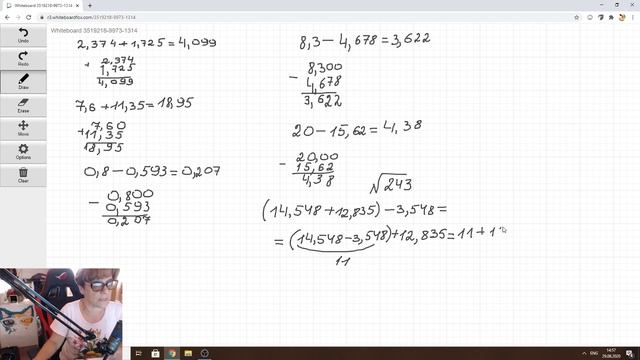 Whiteboard 3519218-9973-1314
r3.whiteboardfox.com/3519218-9973-1314
Whiteboard 3519218-9973-1314
Undo
Redo
Draw
Erase
Move
Options
Zoom
2,374+1,725=4,099
+ 2,374
1,725
4,099
7,6+11,35=18,95
7,60
+11,35
18,95
0,8-0,593=0,207
- 0,800
0,593
0,207
8,3-4,678=3,622
- 8,300
4,678
3,622
20-15,62=4,38
- 20,00
15,62
4,38
√243
(14,548+12,835)-3,548=
=(14,548-3,548)+12,835=11+1
11
14:57
29.08.2020